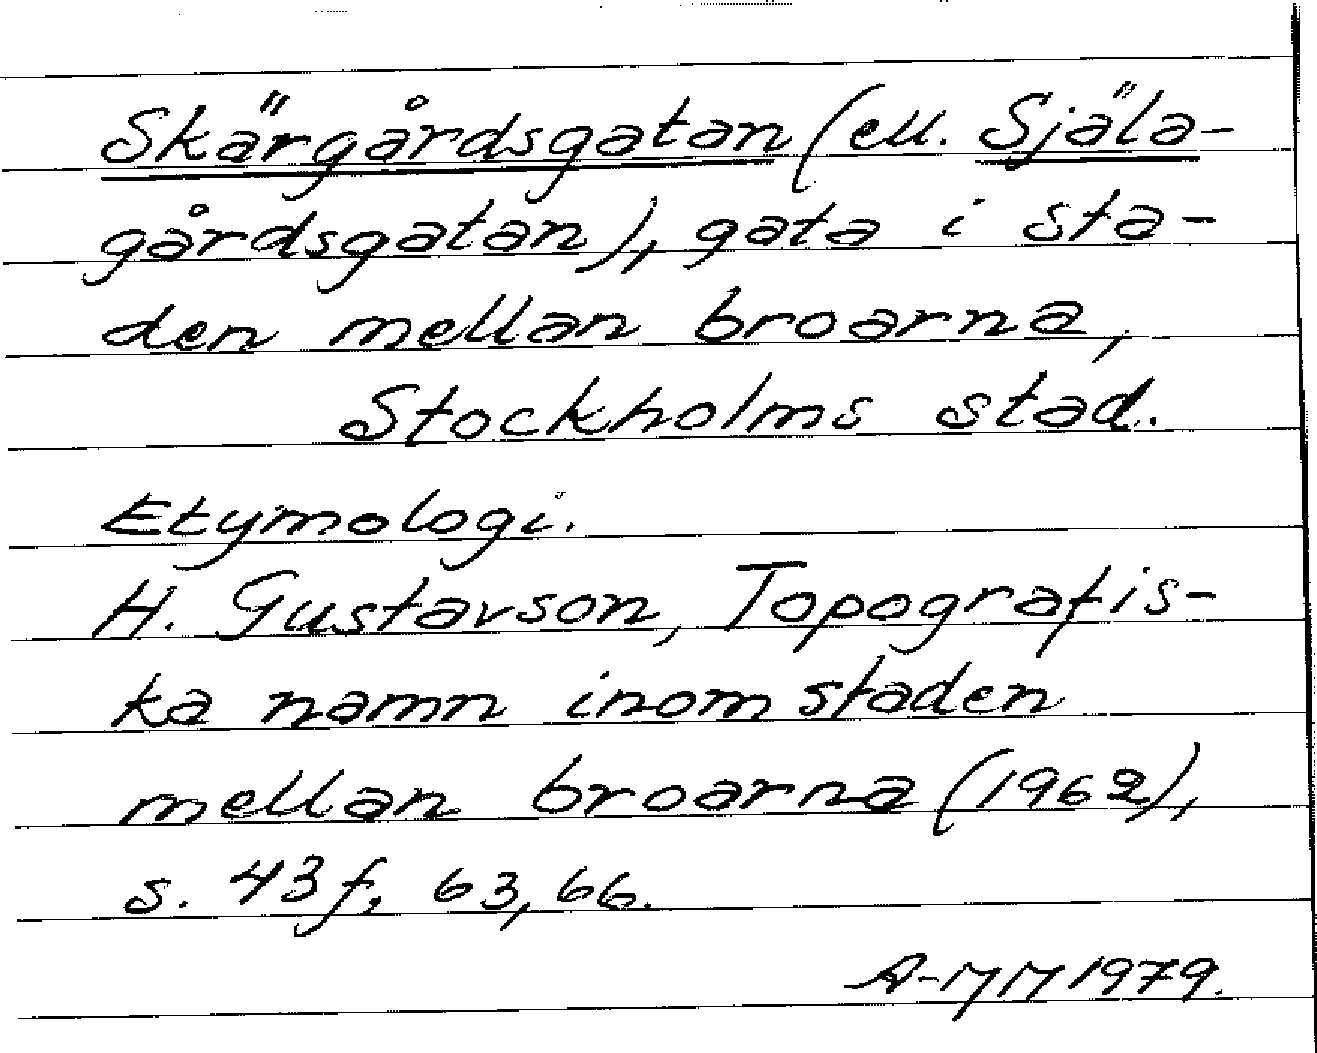 Skärgårdsgatan (ell. Själa-
gårdsgatan), gata i sta-
den mellan broarna,
Stockholms stad.
Etymologi.
H. Gustavson, Topografis-
ka namn inom staden
mellan broarna (1962),
s. 43 f, 63, 66.
A-MM 1979.